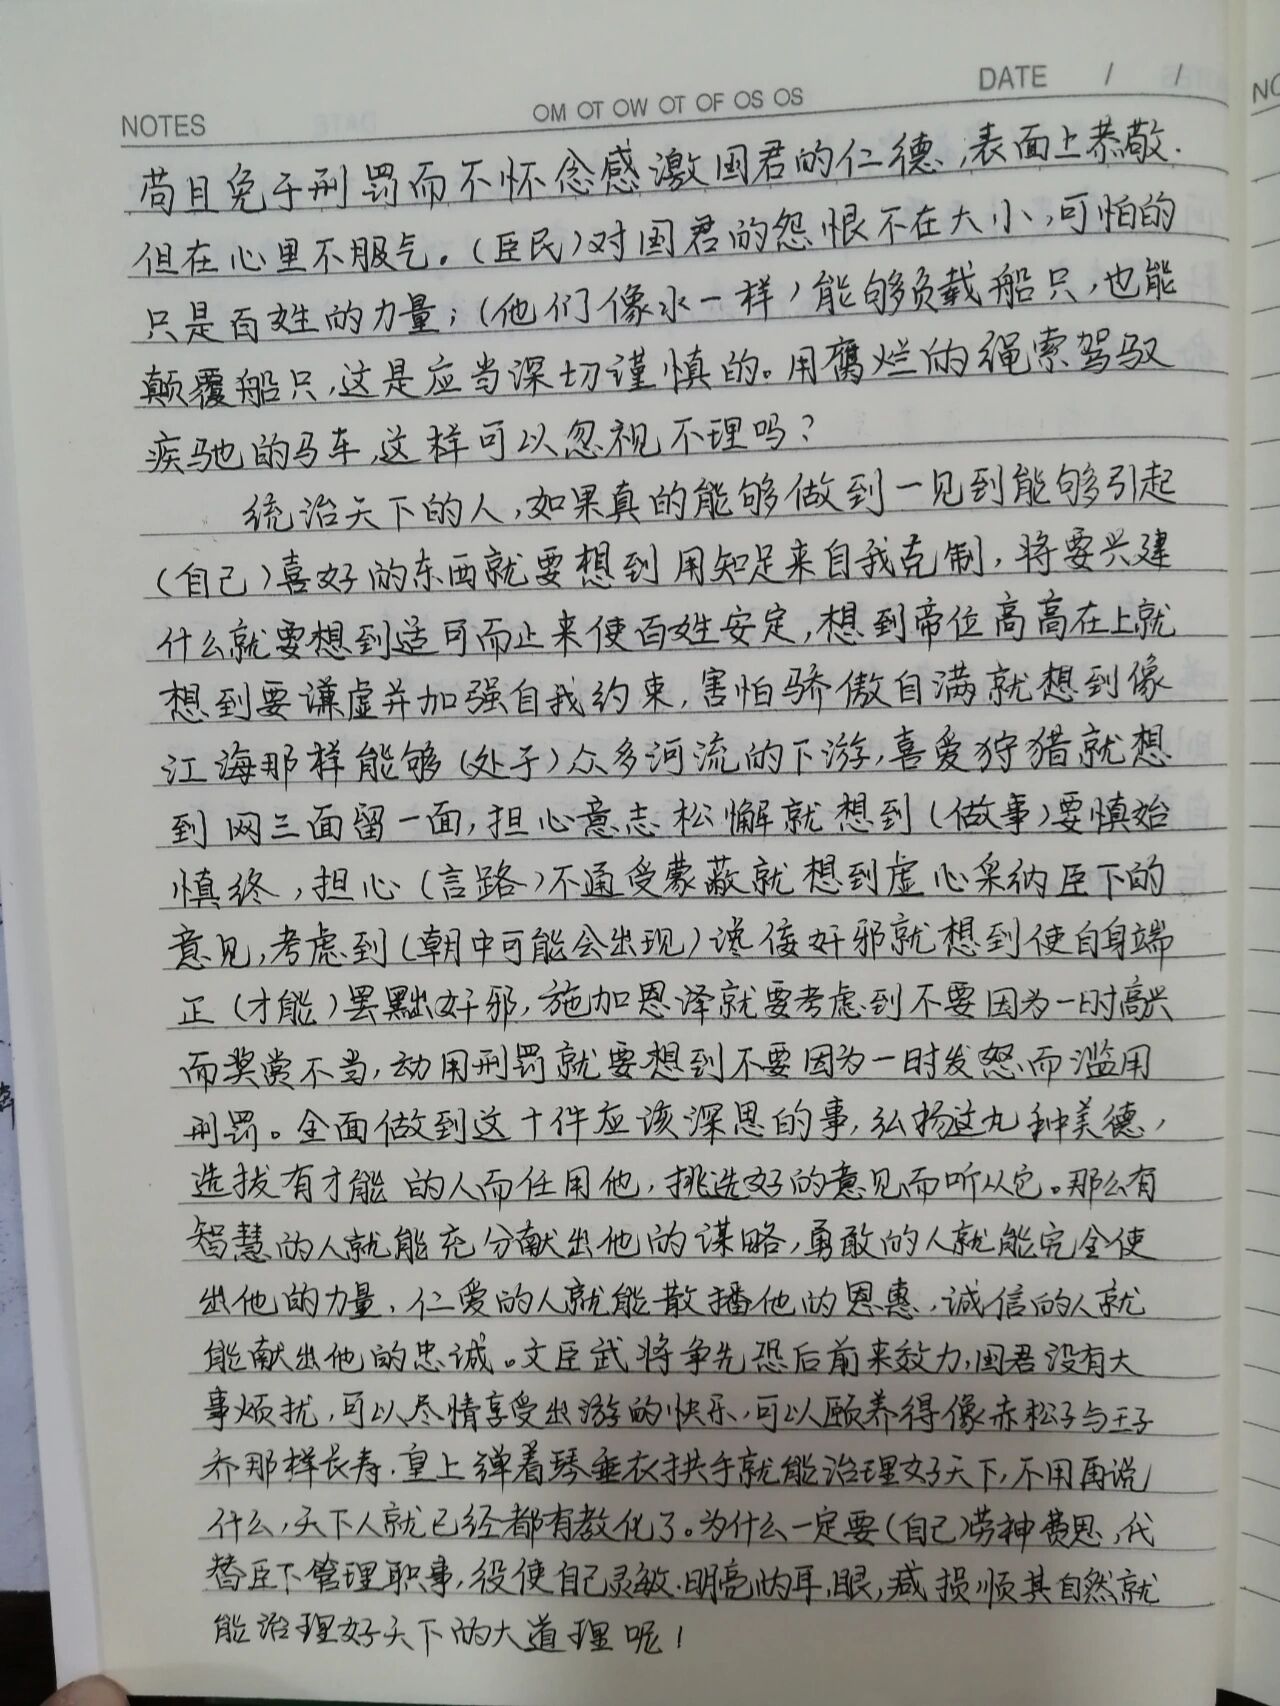 NOTES
OM OT OW OT OF OS OS
DATE / /
NO
苟且免于刑罚而不怀念感激国君的仁德，表面上恭敬.
但在心里不服气。（臣民）对国君的怨恨不在大小，可怕的
只是百姓的力量；（他们像水一样）能够负载船只，也能
颠覆船只，这是应当深切谨慎的。用腐烂的绳索驾驭
疾驰的马车，这样可以忽视不理吗？
统治天下的人，如果真的能够做到一见到能够引起
（自己）喜好的东西就要想到用知足来自我克制，将要兴建
什么就要想到适可而止来使百姓安定，想到帝位高高在上就
想到要谦虚并加强自我约束，害怕骄傲自满就想到像
江海那样能够（处于）众多河流的下游，喜爱狩猎就想
到网三面留一面，担心意志松懈就想到（做事）要慎始
慎终，担心（言路）不通受蒙蔽就想到虚心采纳臣下的
意见，考虑到（朝中可能会出现）谗佞奸邪就想到使自身端
正（才能）罢黜奸邪，施加恩泽就要考虑到不要因为一时高兴
而奖赏不当，动用刑罚就要想到不要因为一时发怒而滥用
刑罚。全面做到这十件应该深思的事，弘扬这九种美德，
选拔有才能的人而任用他，挑选好的意见而听从它。那么有
智慧的人就能充分献出他的谋略，勇敢的人就能完全使
出他的力量，仁爱的人就能散播他的恩惠，诚信的人就
能献出他的忠诚。文臣武将争先恐后前来效力，国君没有大
事烦扰，可以尽情享受出游的快乐，可以颐养得像赤松子与王子
乔那样长寿.皇上弹着琴垂衣拱手就能治理好天下，不用再说
什么，天下人就已经都有教化了。为什么一定要（自己）劳神费思，代
替臣下管理职事，役使自己灵敏.明亮的耳，眼，减损顺其自然就
能治理好天下的大道理呢！